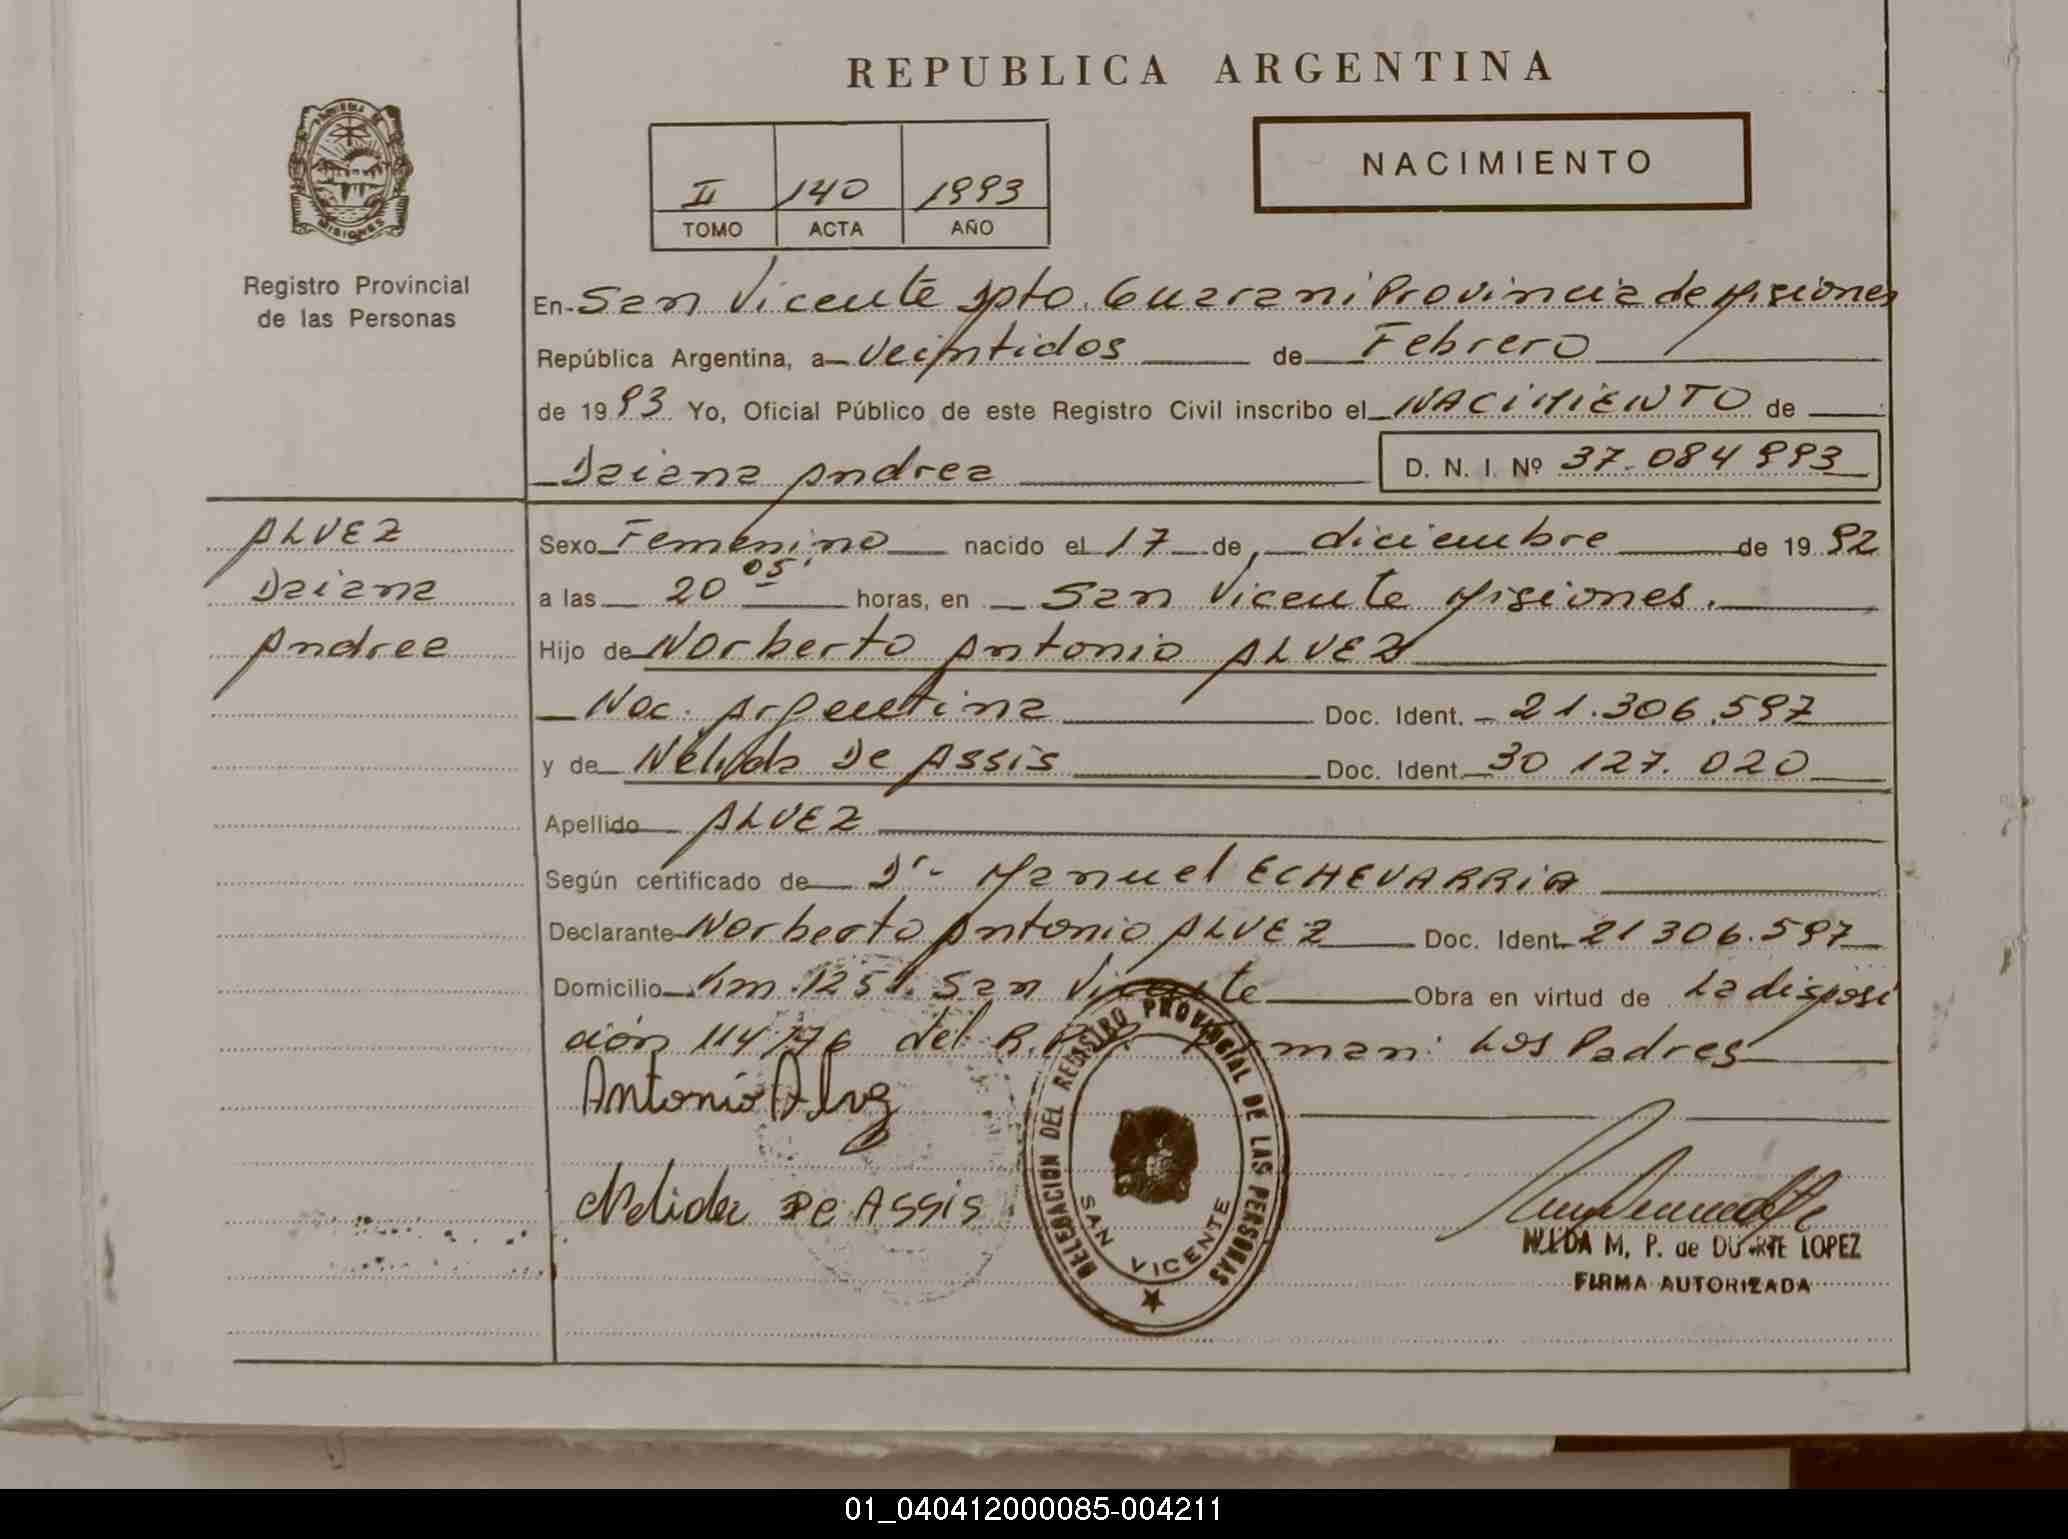 REPUBLICA ARGENTINA
NACIMIENTO
II 140 1993
TOMO ACTA AÑO
MISIONES
Registro Provincial
de las Personas
En San Vicente Dpto. Guarani Provincia de Misiones
República Argentina, a veintidos de Febrero
de 1993 Yo, Oficial Público de este Registro Civil inscribo el NACIMIENTO de
Daiana Andrea D. N. I. Nº 37.084 993
ALVEZ
Daiana
Andrea
Sexo Femenino nacido el 17 de diciembre de 1992
a las 20 05' horas, en San Vicente Misiones.
Hijo de Norberto Antonio ALVEZ
Nac. Argentina Doc. Ident. 21.306.597
y de Nelida De Assis Doc. Ident. 30 127. 020
Apellido ALVEZ
Según certificado de Dr. Manuel ECHEVARRiA
Declarante Norberto Antonio ALVEZ Doc. Ident. 21 306.597
Domicilio Km. 1251. San Vicente Obra en virtud de La disposi
ción 114/76 del Los Padres
Antonio Alvez
Nelida De Assis
DELEGACION DEL REGISTRO PROVINCIAL DE LAS PERSONAS
SAN VICENTE
M. P. de DUARTE LOPEZ
FIRMA AUTORIZADA
01_040412000085-004211